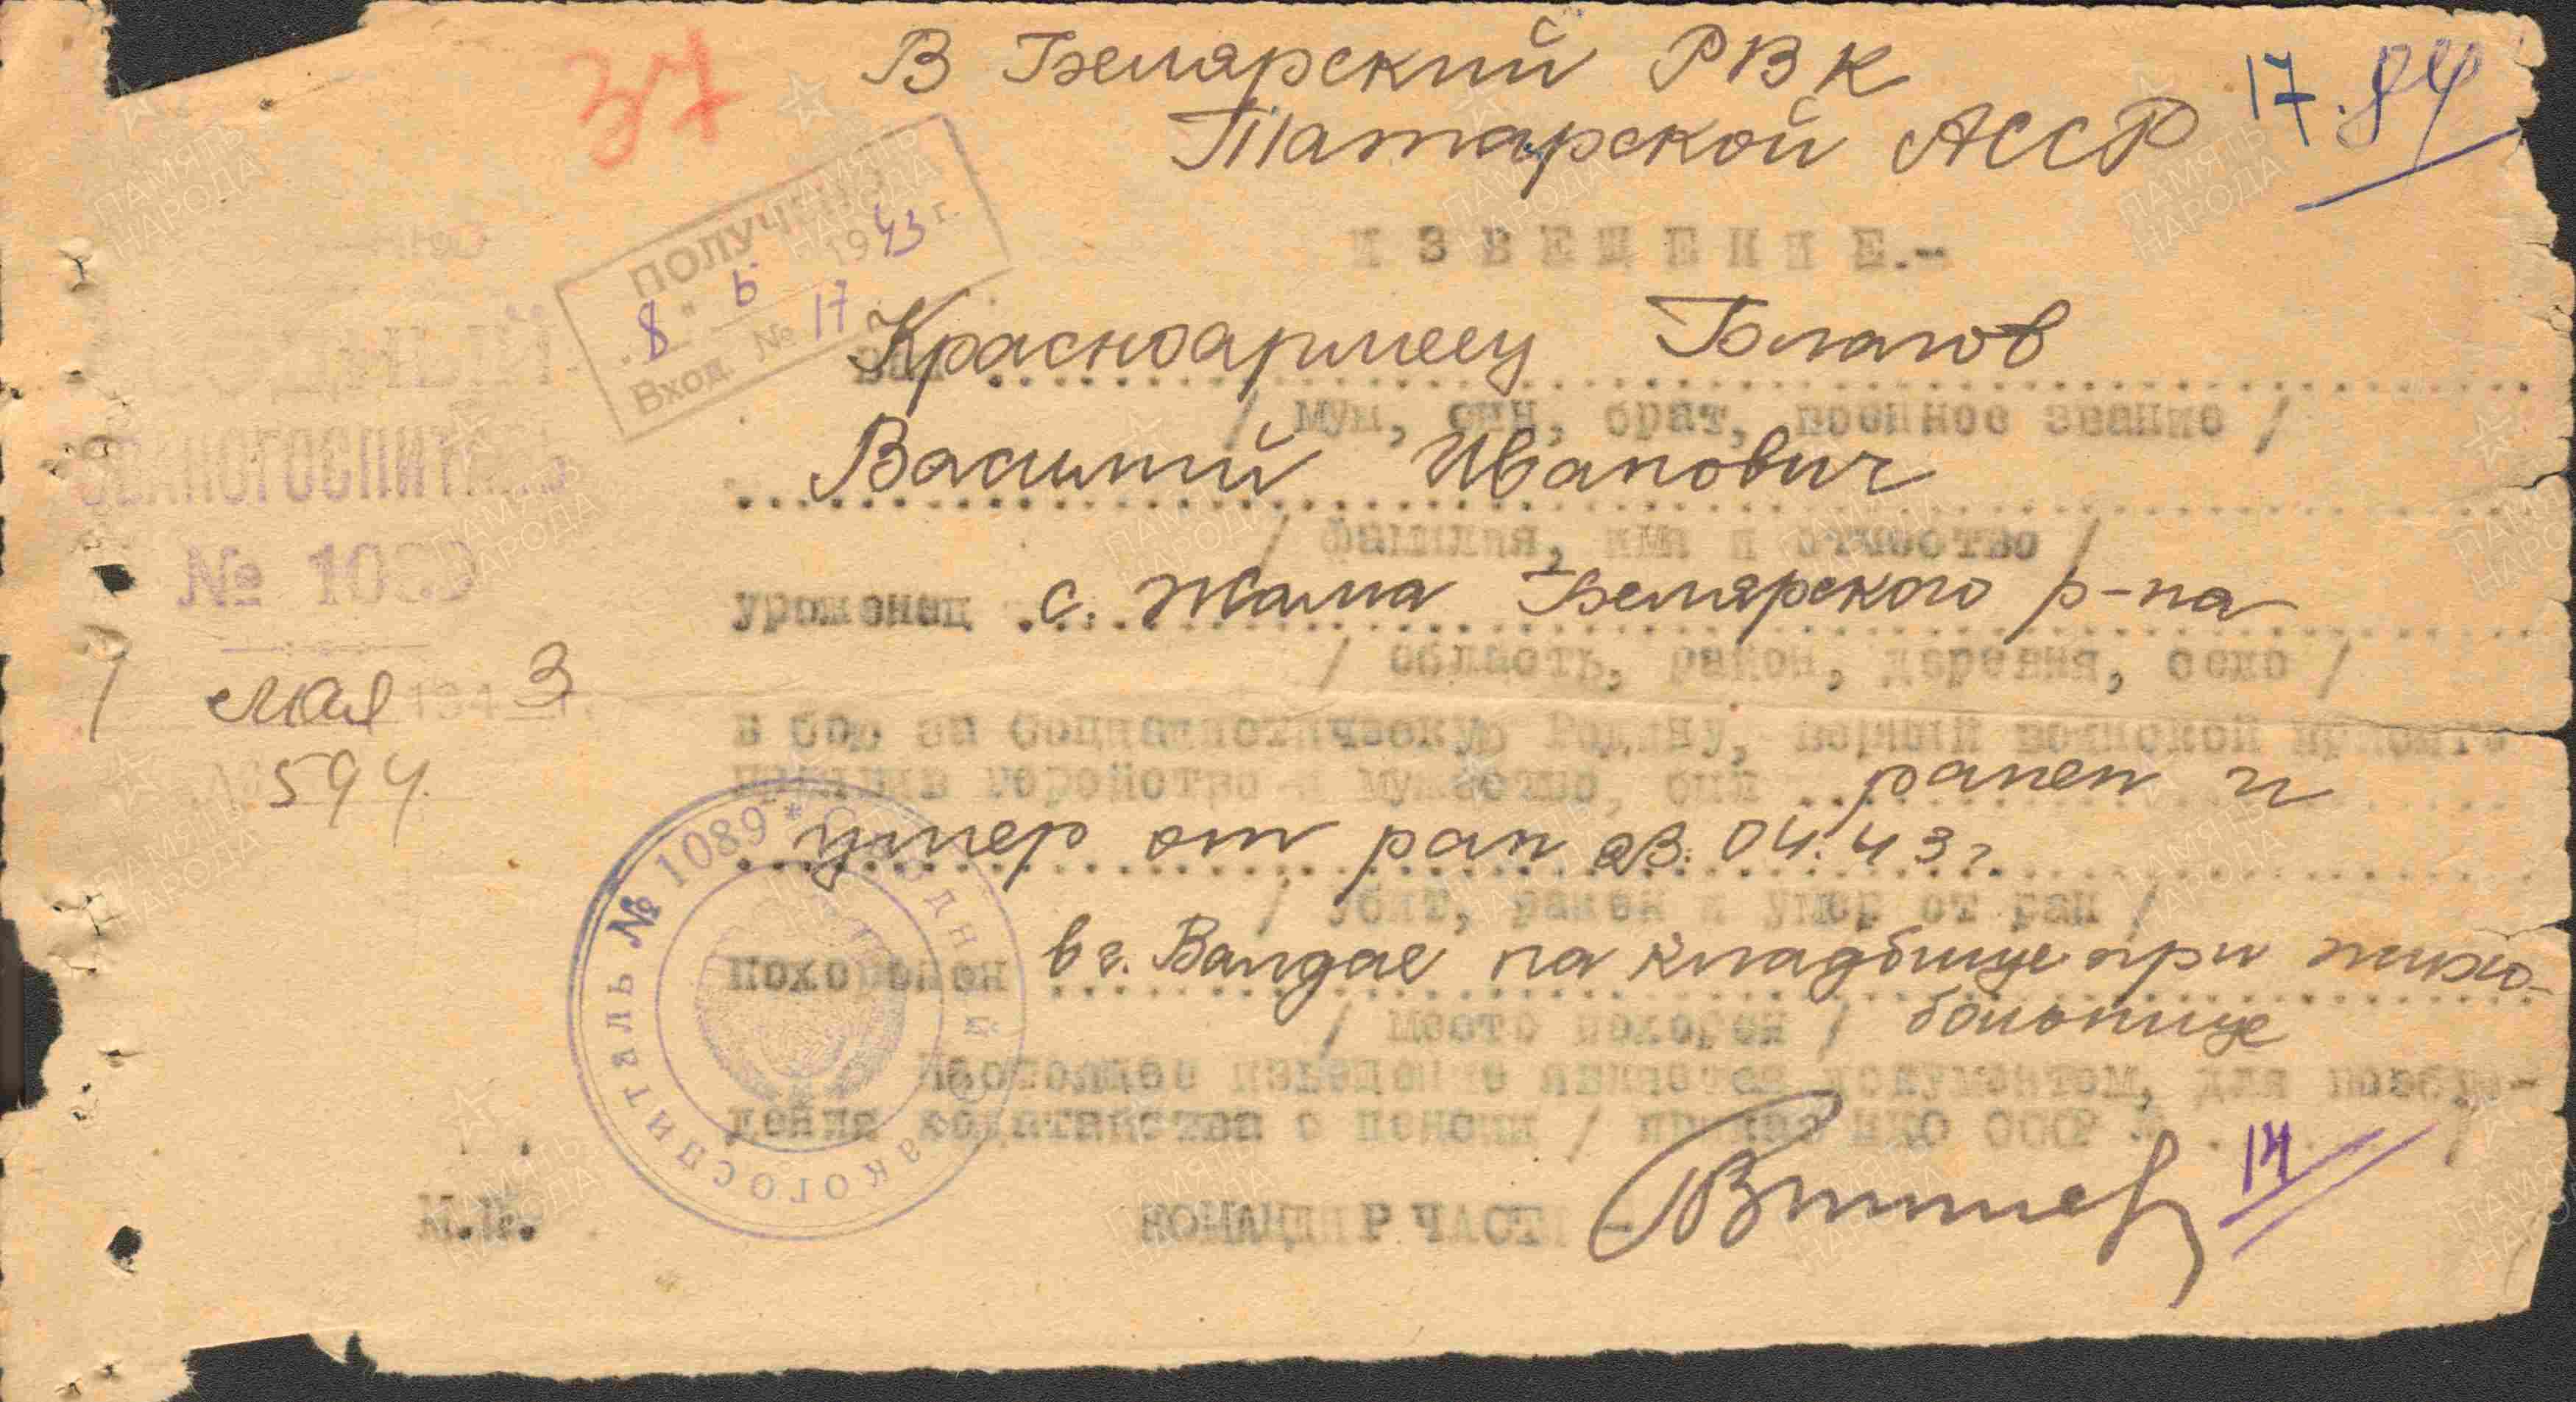 37
В Белярский РВК
17. 84
Татарской АССР
ИЗВЕЩЕНИЕ.-
ПОЛУЧЕНО
"8" 6 1943 г.
Вход. № 17
СВОДНЫЙ
ЭВАКОГОСПИТАЛЬ
№ 1089
мая 1943 г.
№ 594
Ваш Красноармеец Благов
/ муж, сын, брат, военное звание /
Василий Иванович
/ фамилия, имя и отчество /
уроженец с. Жама Белярского р-на
/ область, район, деревня, село /
в бою за социалистическую Родину, верный воинской присяге
проявив геройство и мужество, был ранен и
умер от ран 23.04.43 г.
/ убит, ранен и умер от ран /
похоронен в г. Валдае на кладбище при психо-
/ место похорон / больнице
Настоящее извещение является документом, для возбуж-
дения ходатайства о пенсии / приказ НКО СССР № . . . /
14
М.П.
КОМАНДИР ЧАСТИ -
Сводный эвакогоспиталь № 1089 *
ПАМЯТЬ НАРОДА